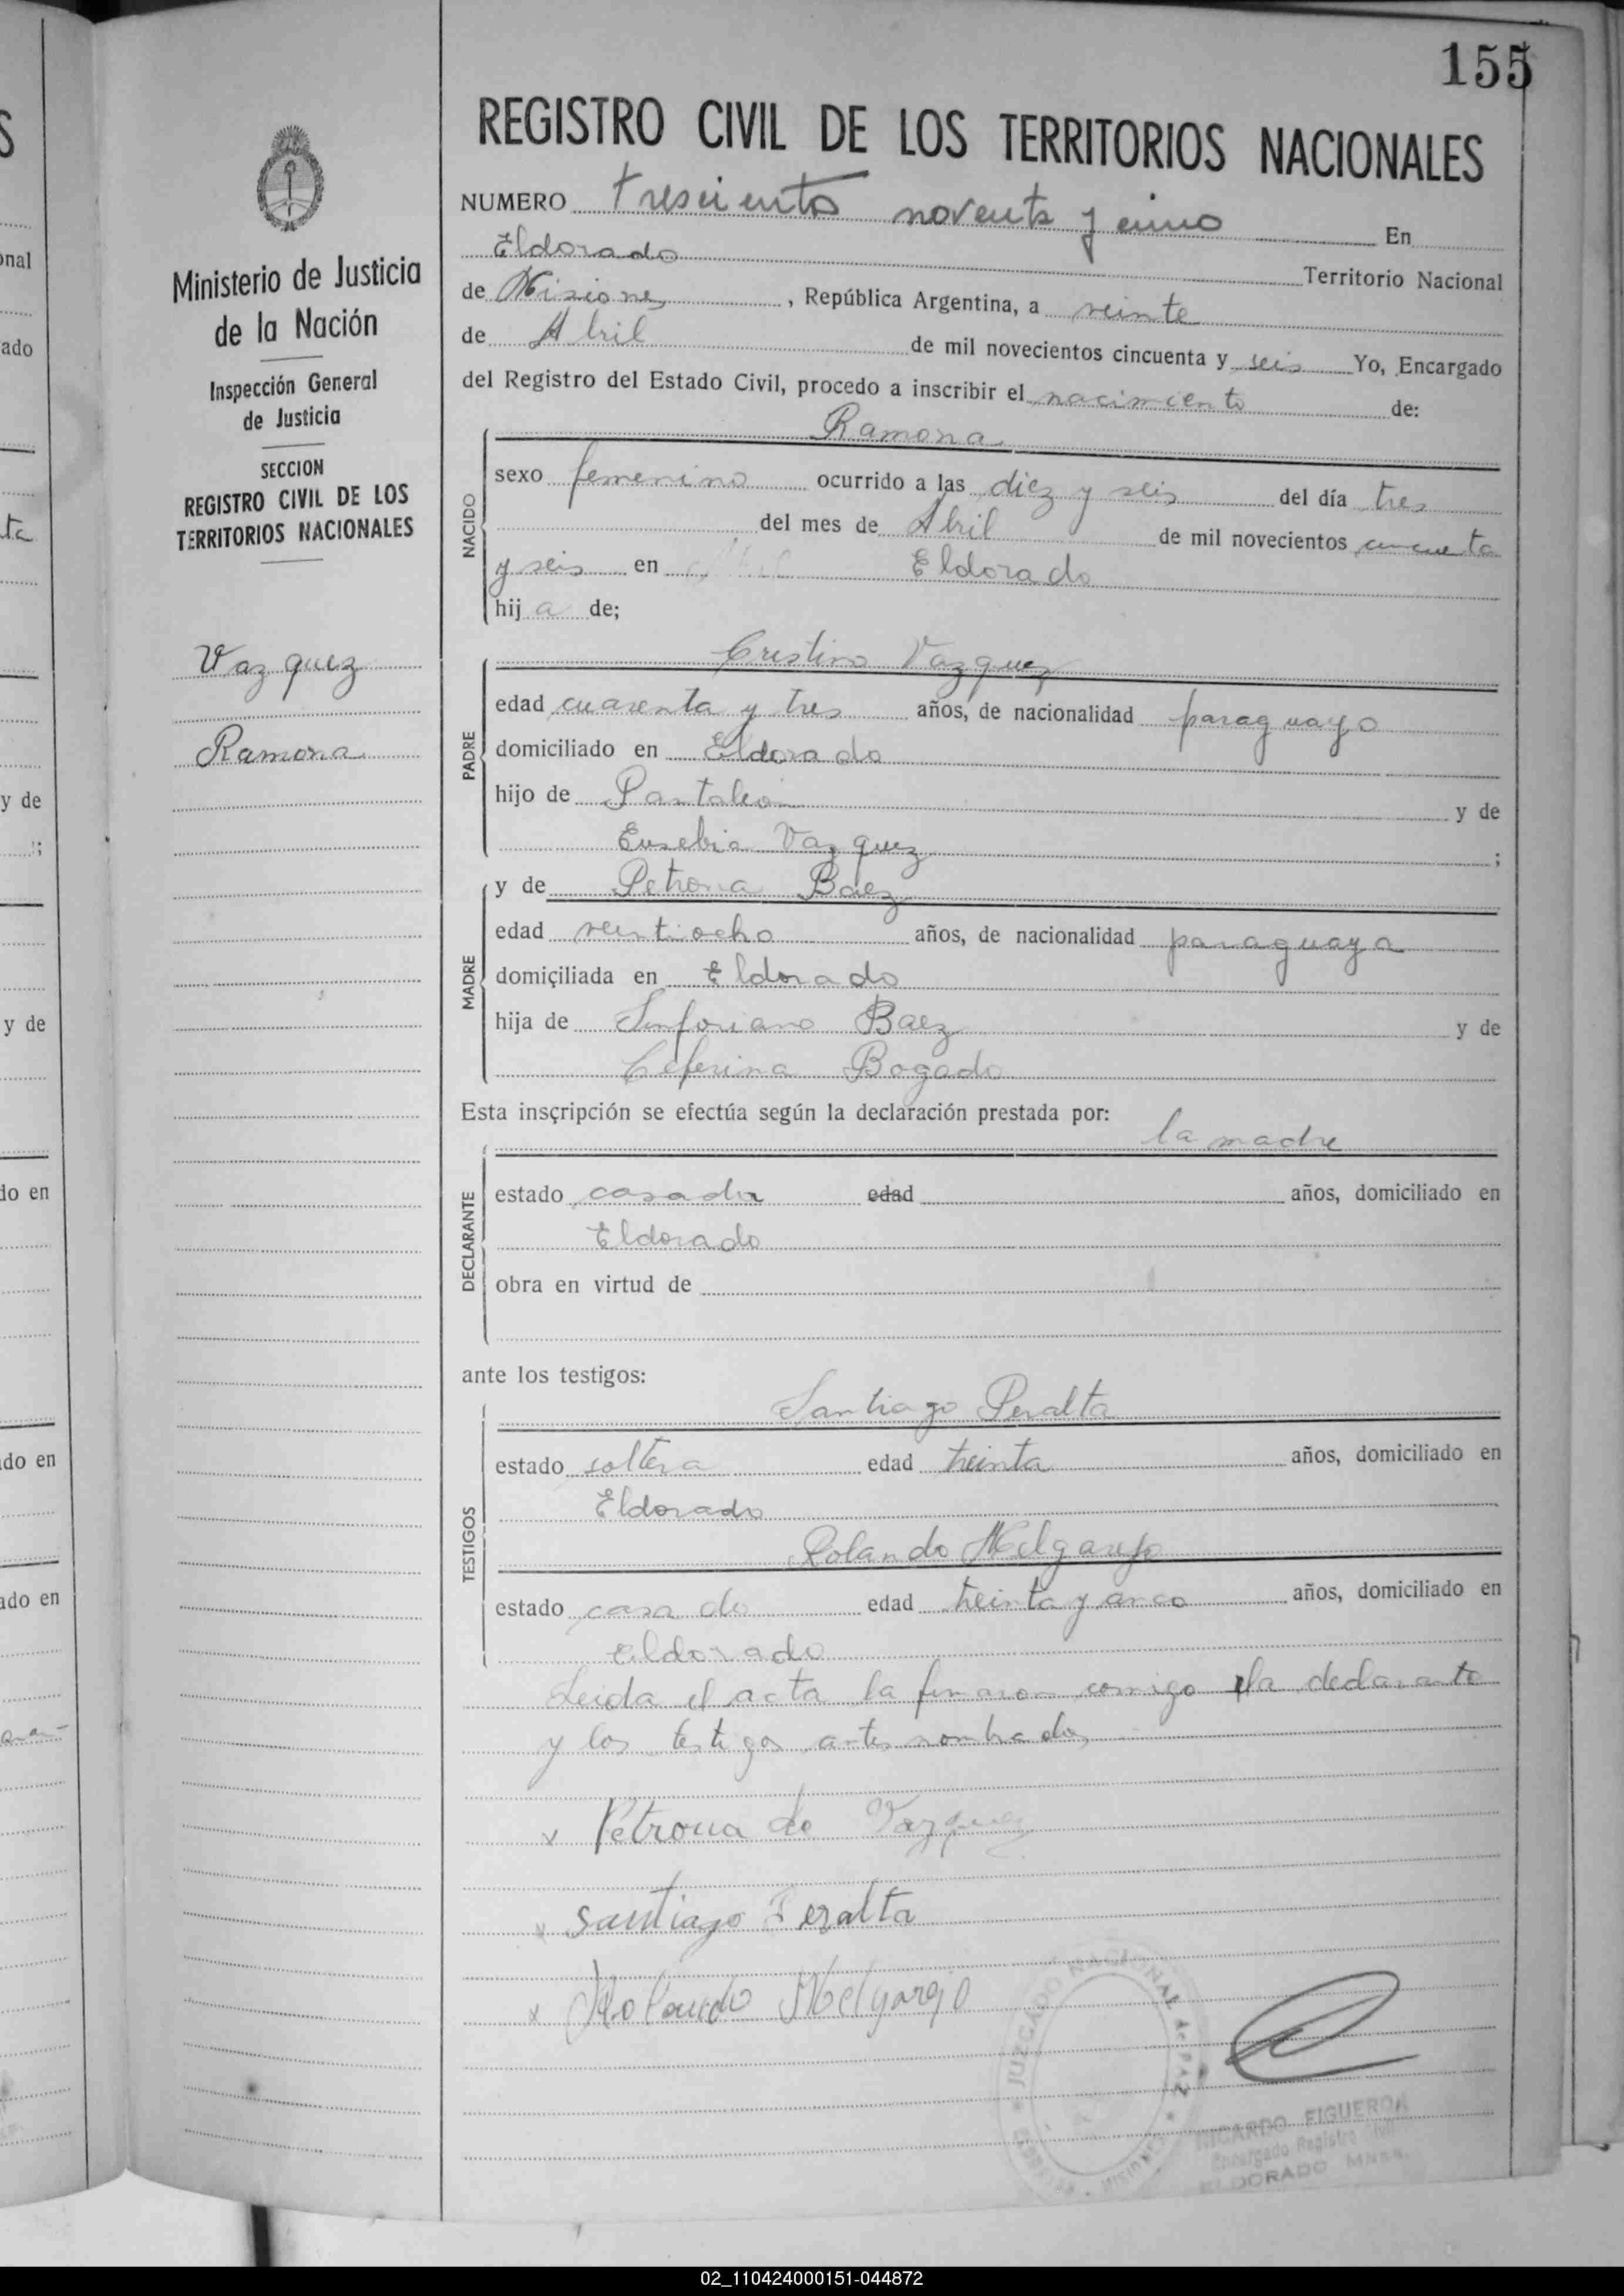 155
REGISTRO CIVIL DE LOS TERRITORIOS NACIONALES
NUMERO Tresciento noventa y cinco En
Eldorado Territorio Nacional
de Misiones, República Argentina, a veinte
de Abril de mil novecientos cincuenta y seis Yo, Encargado
del Registro del Estado Civil, procedo a inscribir el nacimiento de:
Ministerio de Justicia
de la Nación
Inspección General
de Justicia
SECCION
REGISTRO CIVIL DE LOS
TERRITORIOS NACIONALES
Vazquez
Ramona
NACIDO
Ramona
sexo femenino ocurrido a las diez y seis del día tres
del mes de Abril de mil novecientos cincuenta
y seis en Eldorado
hija de;
PADRE
Cristino Vazquez
edad cuarenta y tres años, de nacionalidad paraguayo
domiciliado en Eldorado
hijo de Pantaleon y de
Eusebia Vazquez ;
MADRE
y de Petrona Baez
edad veintiocho años, de nacionalidad paraguaya
domiciliada en Eldorado
hija de Sinforiano Baez y de
Ceferina Bogado
Esta inscripción se efectúa según la declaración prestada por:
la madre
DECLARANTE
estado casada edad años, domiciliado en
Eldorado
obra en virtud de
ante los testigos:
TESTIGOS
Santiago Peralta
estado soltera edad treinta años, domiciliado en
Eldorado
Rolando Melgarejo
estado casado edad treinta y cinco años, domiciliado en
Eldorado
Leida el acta la firmaron comigo la declarante
y los testigos antes nombrados
x Petrona de Vazquez
x Santiago Peralta
x Rolando Melgarejo
JUZGADO NACIONAL de PAZ
MISIONES
RICARDO FIGUEROA
Encargado Registro Civil
ELDORADO Mnes.
02_110424000151-044872